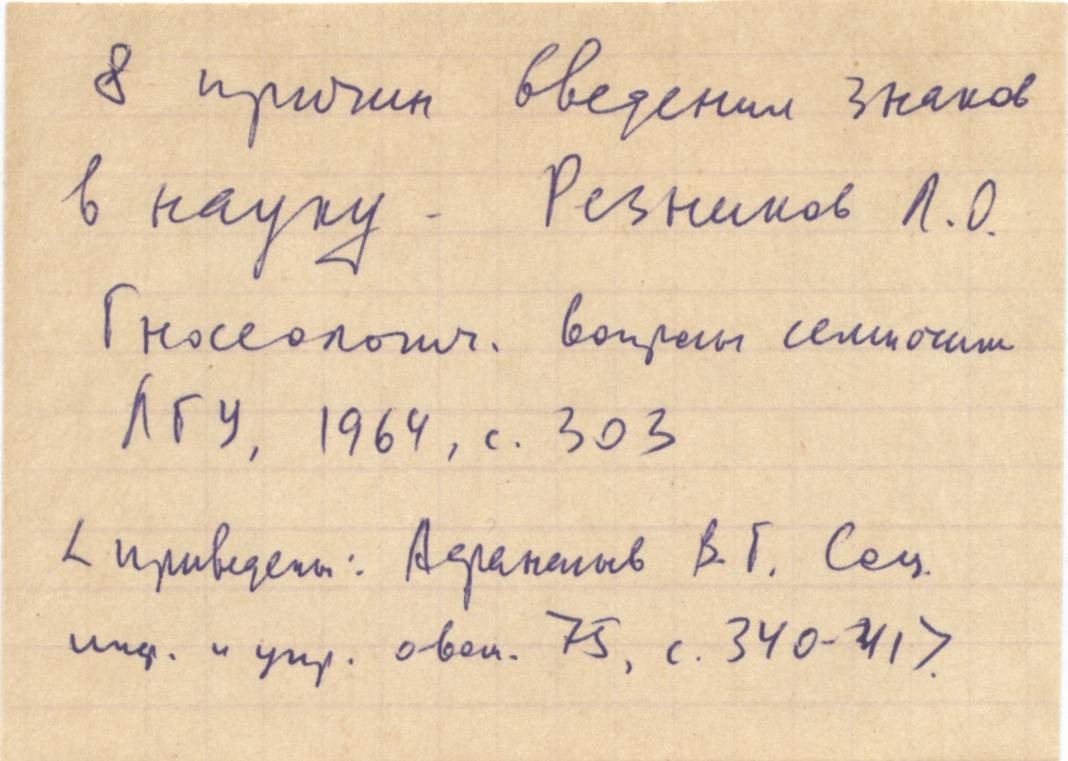 8 причин введения знаков
в науку - Резников Л.О.
Гносеологич. вопросы семиотики
ЛГУ, 1964, с. 303
< приведены: Афанасьев В.Г. Соц.
инф. и упр. общ. 75, с. 340-41>.